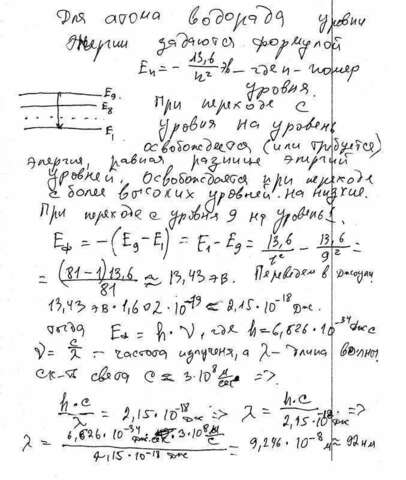 Для атома водорода уровни
Энергии задаются формулой
Eₙ = - 13,6/n² эВ - где n - номер
уровня.
E₉
E₈
E₁
При переходе с
уровня на уровень
освобождается (или требуется)
энергия, равная разнице энергий
уровней. Освобождается при переходе
с более высоких уровней на низкие.
При переходе с уровня 9 на уровень 1.
E_ф = -(E₉ - E₁) = E₁ - E₉ = 13,6/1² - 13,6/9² =
= (81-1)13,6/81 ≈ 13,43 эВ. Переведем в джоули
13,43 эВ · 1,602 · 10⁻¹⁹ ≈ 2,15 · 10⁻¹⁸ Дж.
тогда E_ф = h · ν, где h = 6,626 · 10⁻³⁴ Дж с
ν = c/λ - частота излучения, а λ - длина волны
ск-ть света c ≈ 3 · 10⁸ м/сек =>.
h·c/λ = 2,15 · 10⁻¹⁸ Дж => λ = h·c/2,15·10⁻¹⁸ =>
λ = 6,626 · 10⁻³⁴ Дж·сек · 3·10⁸ м/с / 2,15 · 10⁻¹⁸ Дж = 9,246 · 10⁻⁸ м ≈ 92 нм